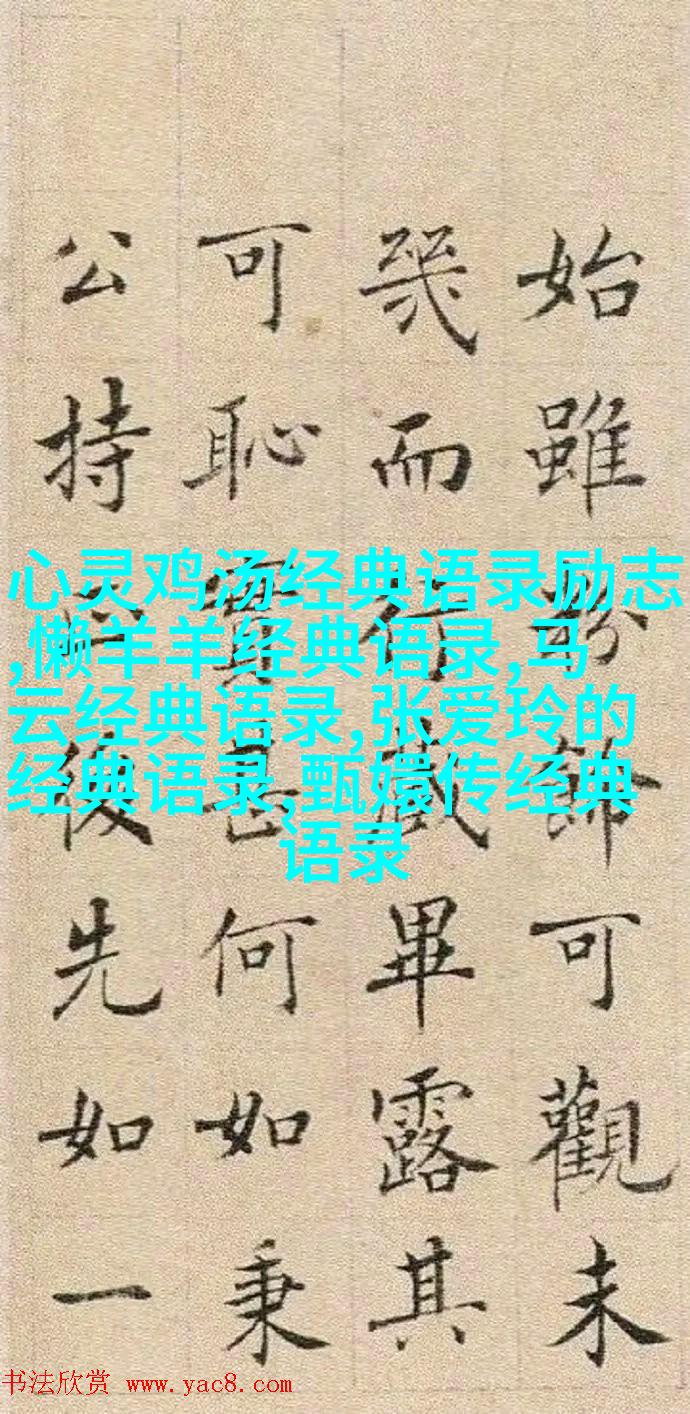 始雖粉飾可觀未
幾而行藏畢露其
可恥實甚何如秉
公持後先如一
心灵鸡汤经典语录励志
,懒羊羊经典语录,马
云经典语录,张爱玲的
经典语录,甄嬛传经典
语录
书法欣赏 www.yac8.com